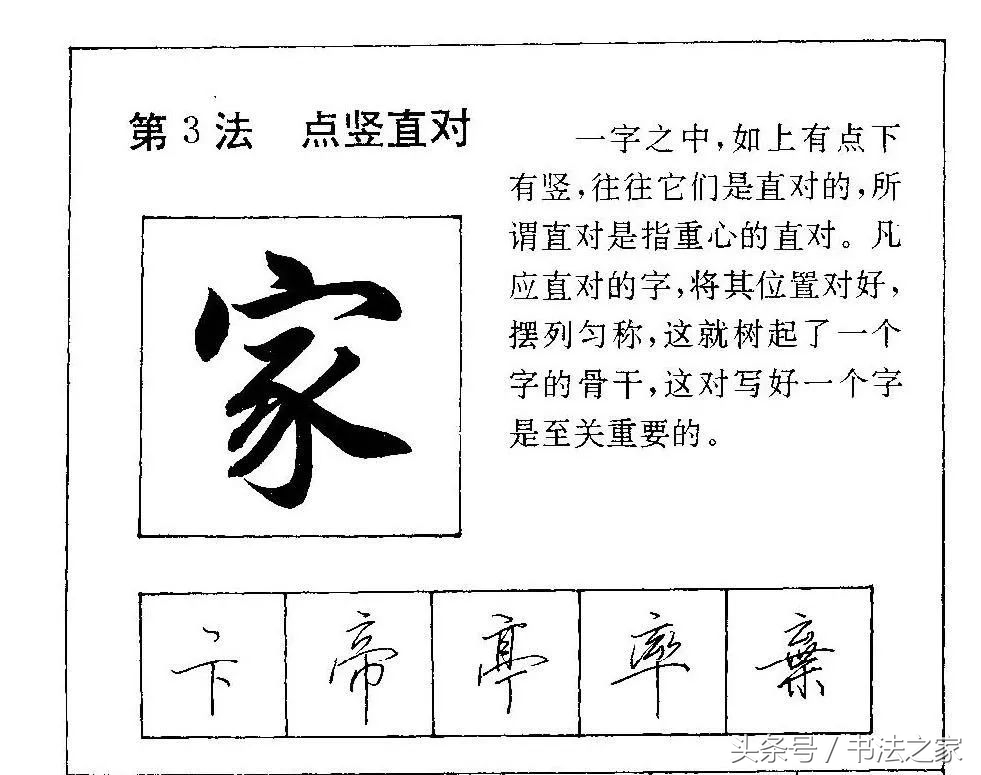 第3法 点竖直对
一字之中，如上有点下
有竖，往往它们是直对的，所
谓直对是指重心的直对。凡
应直对的字，将其位置对好，
摆列匀称，这就树起了一个
字的骨干，这对写好一个字
是至关重要的。
家
卞 帝 亭 率 棄
头条号 / 书法之家